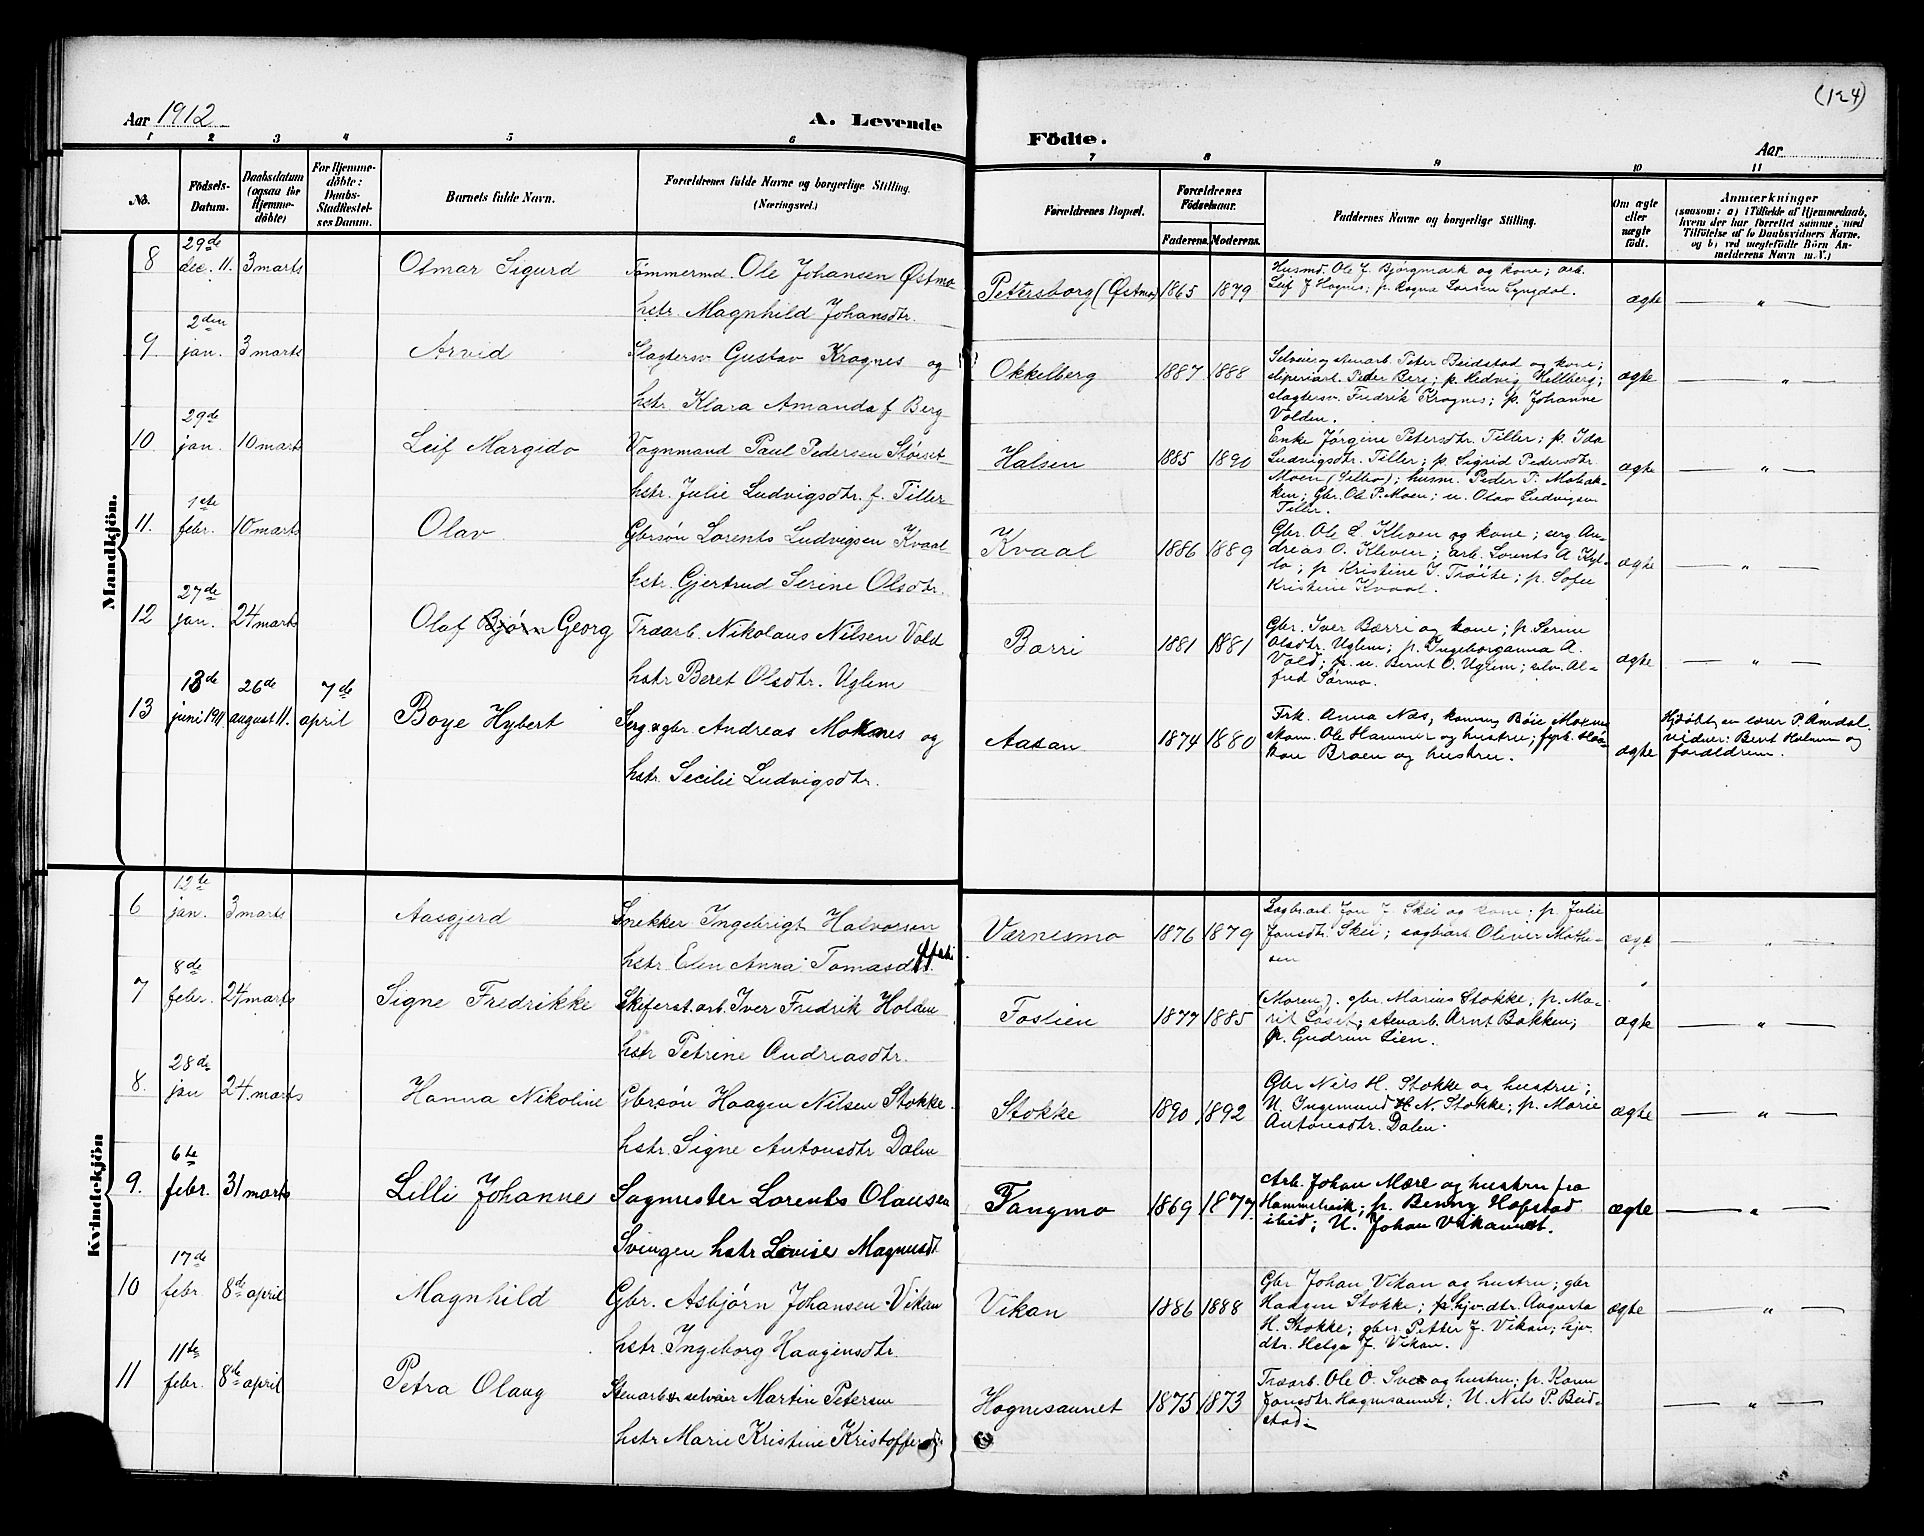 (124)
Aar 1912
A. Levende
Födte.
Aar
1 2 3 4 5 6 7 8 9 10 11
No.
Födsels-
Datum.
Daabsdatum
(ogsaa för
Hjemme-
döbte)
For Hjemme-
döbte:
Daabs-
Stadfæstel-
ses Datum.
Barnets fulde Navn.
Forældrenes fulde Navne og borgerlige Stilling.
(Næringsvei.)
Forældrenes Bopæl.
Forældrenes
Födselsaar.
Faderens. Moderens.
Faddernes Navne og borgerlige Stilling.
Om ægte
eller
uægte
födt.
Anmærkninger
(saasom: a) i Tilfælde af Hjemmedaab,
hvem der har forrettet samme, med
Tilföielse af to Daabsvidners Navne,
og b) ved uægtefödte Börn An-
melderens Navn m. V.)
Mandkjön.
8
29de
dec. 11. 3 marts
Otmar Sigurd
Tømmermd. Ole Johansen Østmo
hstr. Magnhild Johansdtr.
Petersborg (Østmo)
1865 1879
Husmd. Ole J. Bjørgmark og kone; arb.
Leif J. Hognes; p. Ragna Larsen Lyngdal.
ægte
— „ —
9
2den
jan. 3 marts
Arvid
Slagtersv. Gustav Krognes og
hstr. Klara Amanda f. Berg
Okkelberg
1887 1888
Selveier og stenarb. Peter Beidstad og kone;
sliperiarb. Peder Berg; p. Hedvig Hellberg;
slagtersv. Fredrik Krognes; p. Johanne
Volden.
ægte
— „ —
10
29de
jan. 10 marts
Leif Margido
Vognmand Paul Pedersen Störset
hstr. Julie Ludvigsdtr. f. Tiller
Halsen
1885 1890
Enke Jörgine Petersdtr. Tiller; p. Ida
Ludvigsdtr. Tiller; p. Sigrid Pedersdtr.
Moen (Selbo); husm. Peder P. Mobak-
ken; Gbr. Ole P. Moen; u. Olav Ludvigsen
Tiller.
ægte
— „ —
11.
1ste
febr. 10 marts
Olav
Gbrsön Lorents Ludvigsen Kvaal
hstr. Gjertrud Serine Olsdtr.
Kvaal
1886 1889
Gbr. Ole L. Kleven og kone; serg. An-
dreas O. Kleven; arb. Lorents A. Kyl-
lo; p. Kristine J. Tröite; p. Sofie
Kristine Kvaal.
ægte
— „ —
12
27de
jan. 24 marts
Olaf Bjørn Georg
Træarb. Nikolaus Nilsen Vold
hstr. Beret Olsdtr. Uglem
Bærri
1881 1881
Gbr. Iver Bærri og kone; p. Serine
Olsdtr. Uglem; p. Ingeborganna A.
Vold; p. u. Bernt O. Uglem; selv. Al-
fred Sörmo.
ægte
— „ —
13
13de
juni 1911
26de
august 11.
7de
april
Boye Hybert
Serg. & gbr. Andreas Moxnes og
hstr. Secilie Ludvigsdtr.
Aasan
1874 1880
Frk. Anna Næs, kommu Böie Moxnes
skom. Ole Hammer og hustru; fyrb. Haa-
kon Braen og hustru.
ægte
Hjdøbt en lærer P. Amdal.
vidner: Bernt Holmen og
forældrene.
Kvindekjön
6
12te
jan. 3 marts
Aasgjerd
Snekker Ingebrigt Halvorsen
hstr. Elen Anna Tomasdtr.
Værnesmo
1876 1879
Sagbr.arb. Jon J. Skei og kone; p. Julie
Jonsdtr. Skei; sagbrarb. Oliver Mathe-
sen
ægte
— „ —
7
8de
febr. 24 marts
Signe Fredrikke
Skiferst.arb. Iver Fredrik Holden
hstr Petrine Andreasdtr.
Foslien
1877 1885
(Moren). gbr. Marius Stokke; p. Ma-
rit Löset; stenarb. Arnt Bakken;
p. Gudrun Lien.
ægte
— „ —
8.
28de
jan 24 marts
Hanna Nikoline
Gbrsön Haagen Nilsen Stokke.
hstr. Signe Antonsdtr Dalen
Stokke
1890 1892
Gbr Nils H. Stokke og hustru;
U. Ingemund N. Stokke; p. Marie
Antonsdtr. Dalen.
ægte
— „ —
9.
6te
febr. 31 marts
Lilli Johanne
Sagmester Lorents Olausen
Svingen hstr Lovise Magnusdt
Tangmo
1869 1877
Arb. Johan Mære og hustru fra
Hommelvik; p. Benny Hofstad
ibid; U. Johan Vikanmt.
ægte
— „ —
10
17de
febr. 8de april
Magnhild
Gbr. Asbjørn Johansen Vikan
hstr. Ingeborg Haagensdtr.
Vikan
1886 1888
Gbr Johan Vikan og hustru; gbr
Haagen Stokke; p. hjv.dtr. Augusta
H. Stokke; gbrs Petter J. Vikan; hjv.
dtr. Helga J. Vikan.
ægte
— „ —
11
11te
febr. 8de april
Petra Olaug
Stenarb & selveier Martin Petersen
hstr Marie Kristine Kristoffersd.
Hognesaunet
1875 1873
Træarb. Ole O. Sve og hustru; p. Karen
Jonsdtr. Hognesaunet; U. Nils P. Beid-
stad.
— „ —